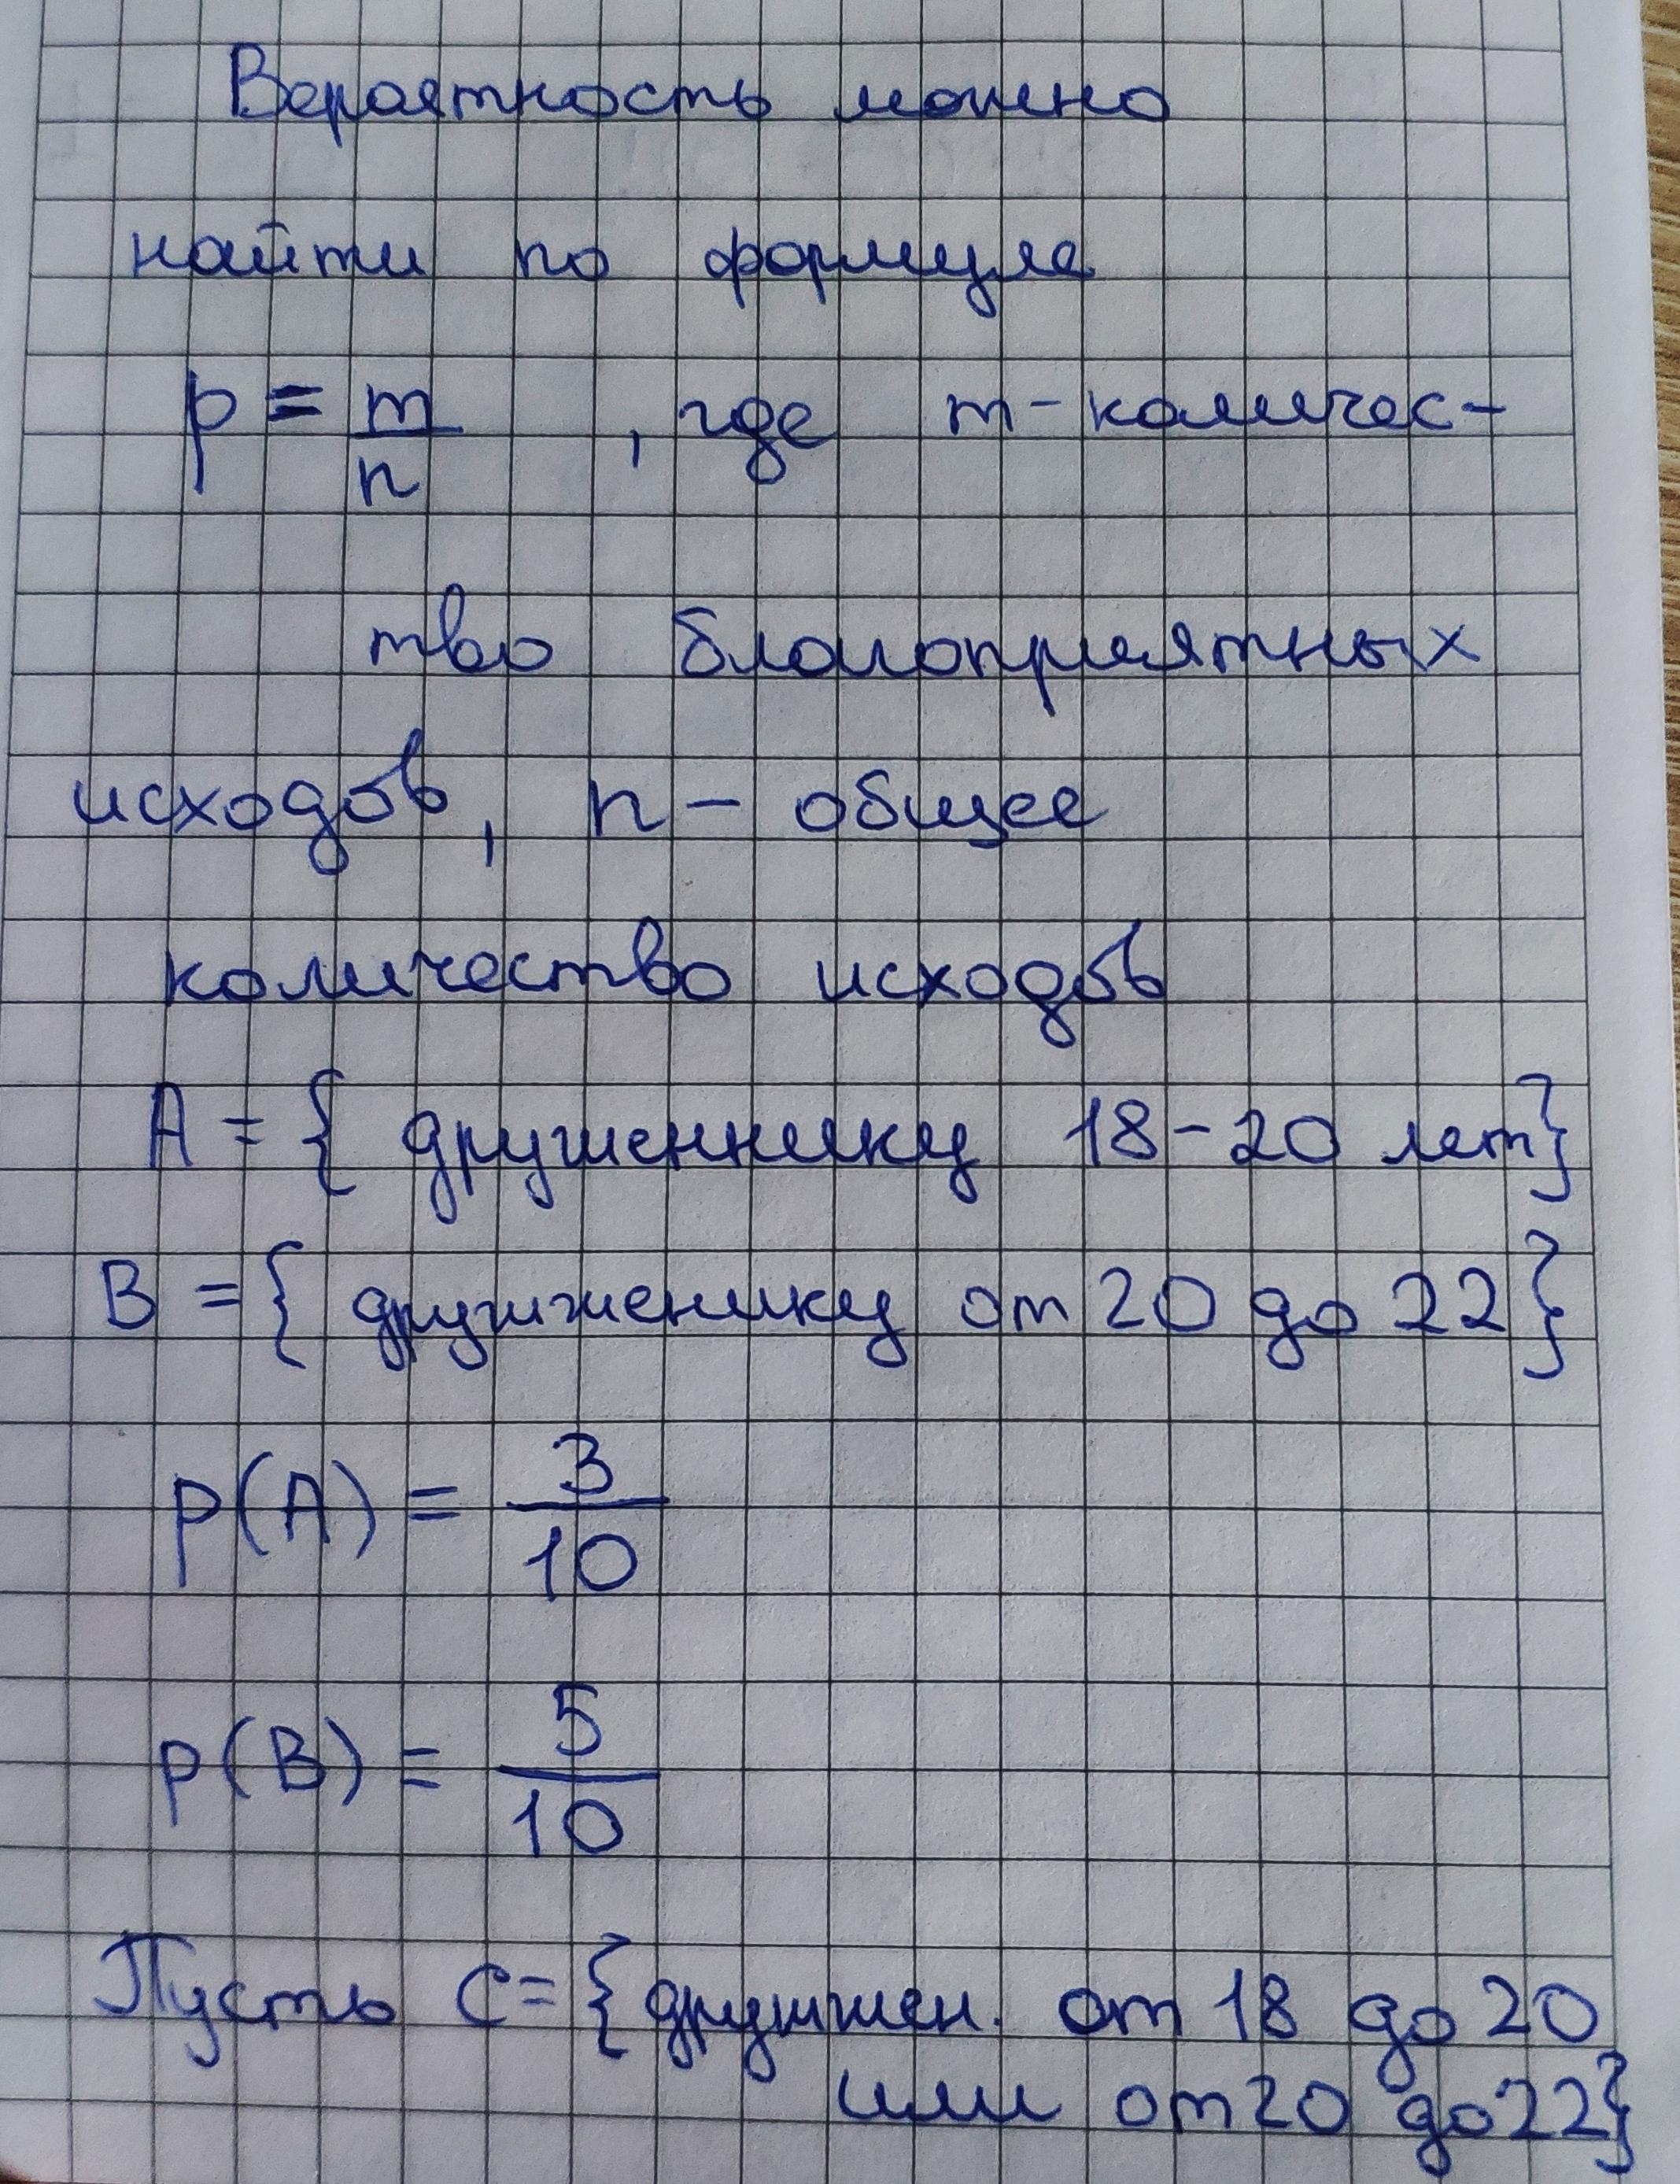 Вероятность можно
найти по формуле
p = m/n , где m - количес-
тво благоприятных
исходов, n - общее
количество исходов
A = { друженнику 18 - 20 лет}
B = { дружженику от 20 до 22 }
p(A) = 3/10
p(B) = 5/10
Пусть C = { дружжен. от 18 до 20
или от 20 до 22}